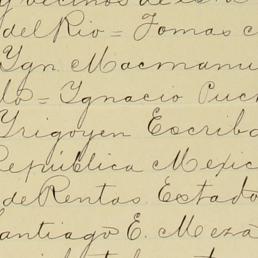 y vecinos de esta
del Rio = Tomas
Ygn. Macmanu
lo = Ignacio
Yrigoyen Escriba
República Mexic
de Rentas. Estado
Santiago E. Meza